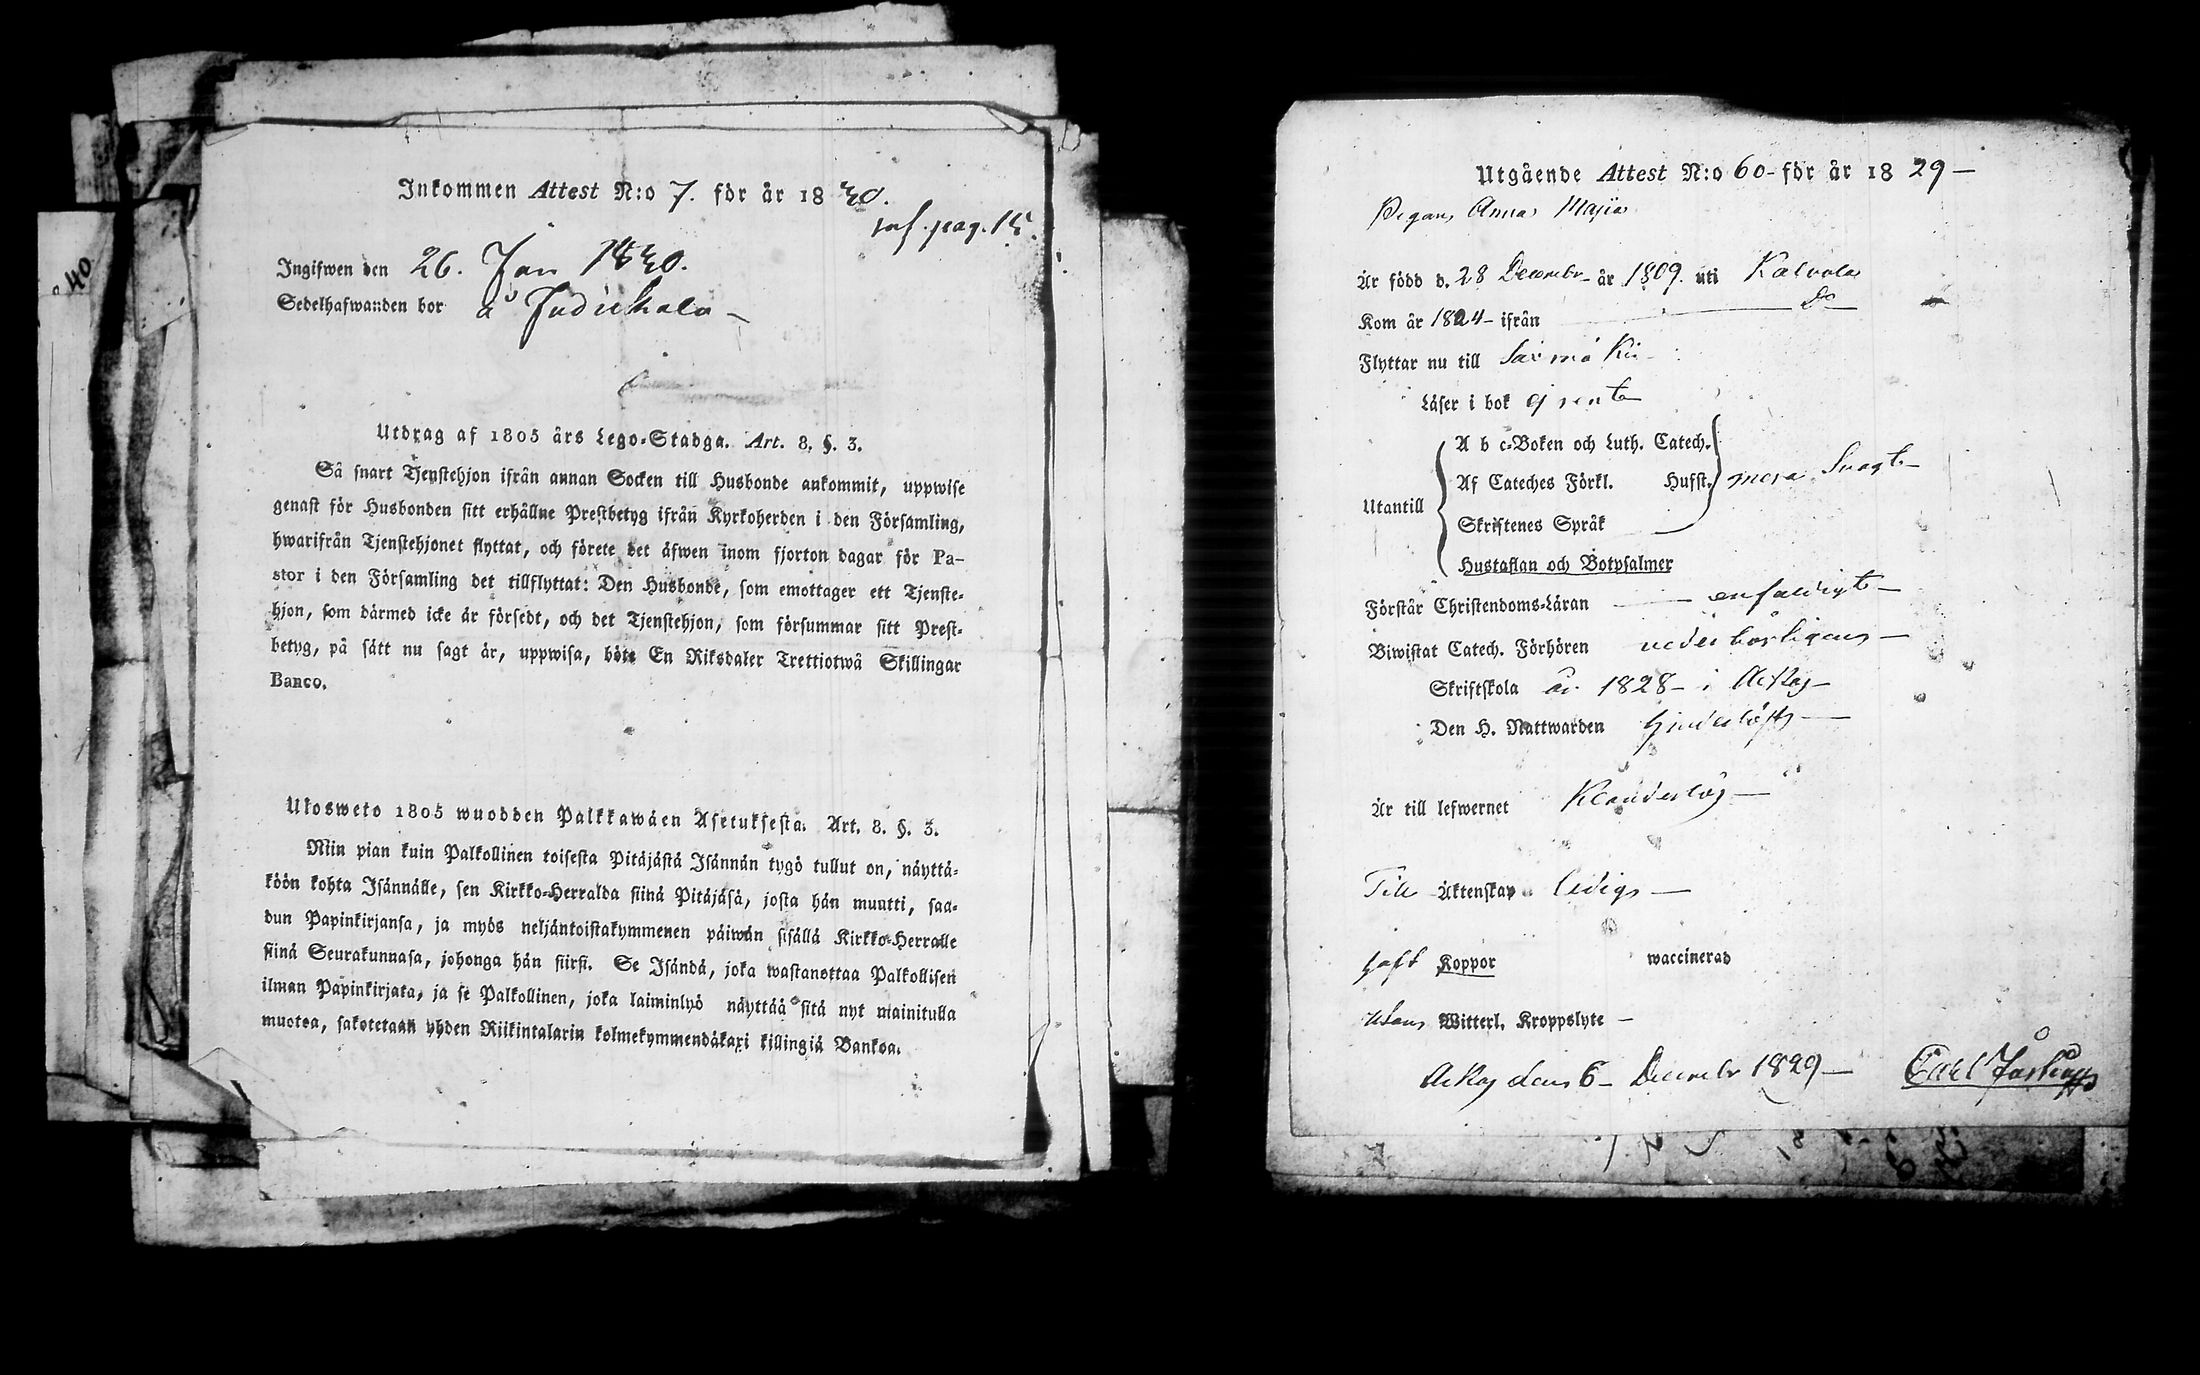 40
Inkommen Attest N:o 7. för år 1830.
inf. pag. 15.
Ingifwen den 26. Jan 1830.
Sedelhafwanden bor å Judikala
Utdrag af 1805 års Lego-Stadga. Art. 8. §. 3.
Så snart Tjenstehjon ifrån annan Socken till Husbonde ankommit, uppwise
genast för Husbonden sitt erhållne Prestbetyg ifrån Kyrkoherden i den Församling,
hwarifrån Tjenstehjonet flyttat, och förete det äfwen inom fjorton dagar för Pa-
stor i den Församling det tillflyttat: Den Husbonde, som emottager ett Tjenste-
hjon, som därmed icke är försedt, och det Tjenstehjon, som försummar sitt Prest-
betyg, på sätt nu sagt är, uppwisa, böte En Riksdaler Trettiotwå Skillingar
Banco.
Ulosweto 1805 wuodden Palkkawäen Asetuksesta. Art. 8. §. 3.
Niin pian kuin Palkollinen toisesta Pitäjästä Isännän tygö tullut on, näyttä-
köön kohta Isännälle, sen Kirkko-Herralda siinä Pitäjäsä, josta hän muutti, saa-
dun Papinkirjansa, ja myös neljäntoistakymmenen päiwän sisällä Kirkko-Herralle
siinä Seurakunnasa, johonga hän siirsi. Se Isändä, joka wastanottaa Palkollisen
ilman Papinkirjata, ja se Palkollinen, joka laiminlyö näyttää sitä nyt mainitulla
muotoa, sakotetaan yhden Riikintalarin kolmekymmendäkaxi killingiä Bankoa.
Utgående Attest N:o 60 - för år 1829 -
Pigan Anna Majia
Är född d. 28 Decembr - år 1809. uti Kalvola
Kom år 1824 - ifrån Do
Flyttar nu till Säxmä Ki
Läser i bok ej rent
A b c-Boken och Luth. Catech.
Af Cateches Förkl. Hufst. mera Svagt -
Utantill
Skriftenes Språk
Hustaflan och Botpsalmer
Förstår Christendoms-Läran - enfaldigt -
Biwistat Catech. Förhören vederbörligen -
Skriftskola år 1828 - i Ackas -
Den H. Nattwarden hinderlöst -
Är till lefwernet Klanderlös -
Till Äktenskap ledig -
haft Koppor waccinerad
utan Witterl. Kroppslyte -
Ackas den 6 - Decembr 1829 - Carl